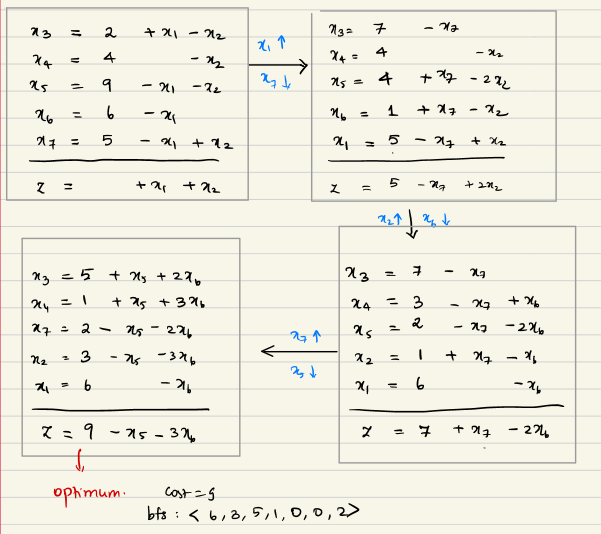 x₃ = 2 + x₁ - x₂
x₄ = 4 - x₂
x₅ = 9 - x₁ - x₂
x₆ = 6 - x₁
x₇ = 5 - x₁ + x₂
z = + x₁ + x₂
x₁ ↑
x₇ ↓
x₃ = 7 - x₇
x₄ = 4 - x₂
x₅ = 4 + x₇ - 2x₂
x₆ = 1 + x₇ - x₂
x₁ = 5 - x₇ + x₂
z = 5 - x₇ + 2x₂
x₂ ↑ x₆ ↓
x₃ = 7 - x₇
x₄ = 3 - x₇ + x₆
x₅ = 2 - x₇ - 2x₆
x₂ = 1 + x₇ - x₆
x₁ = 6 - x₆
z = 7 + x₇ - 2x₆
x₇ ↑
x₅ ↓
x₃ = 5 + x₅ + 2x₆
x₄ = 1 + x₅ + 3x₆
x₇ = 2 - x₅ - 2x₆
x₂ = 3 - x₅ - 3x₆
x₁ = 6 - x₆
z = 9 - x₅ - 3x₆
optimum.
cost = 9
bfs : < 6, 3, 5, 1, 0, 0, 2>